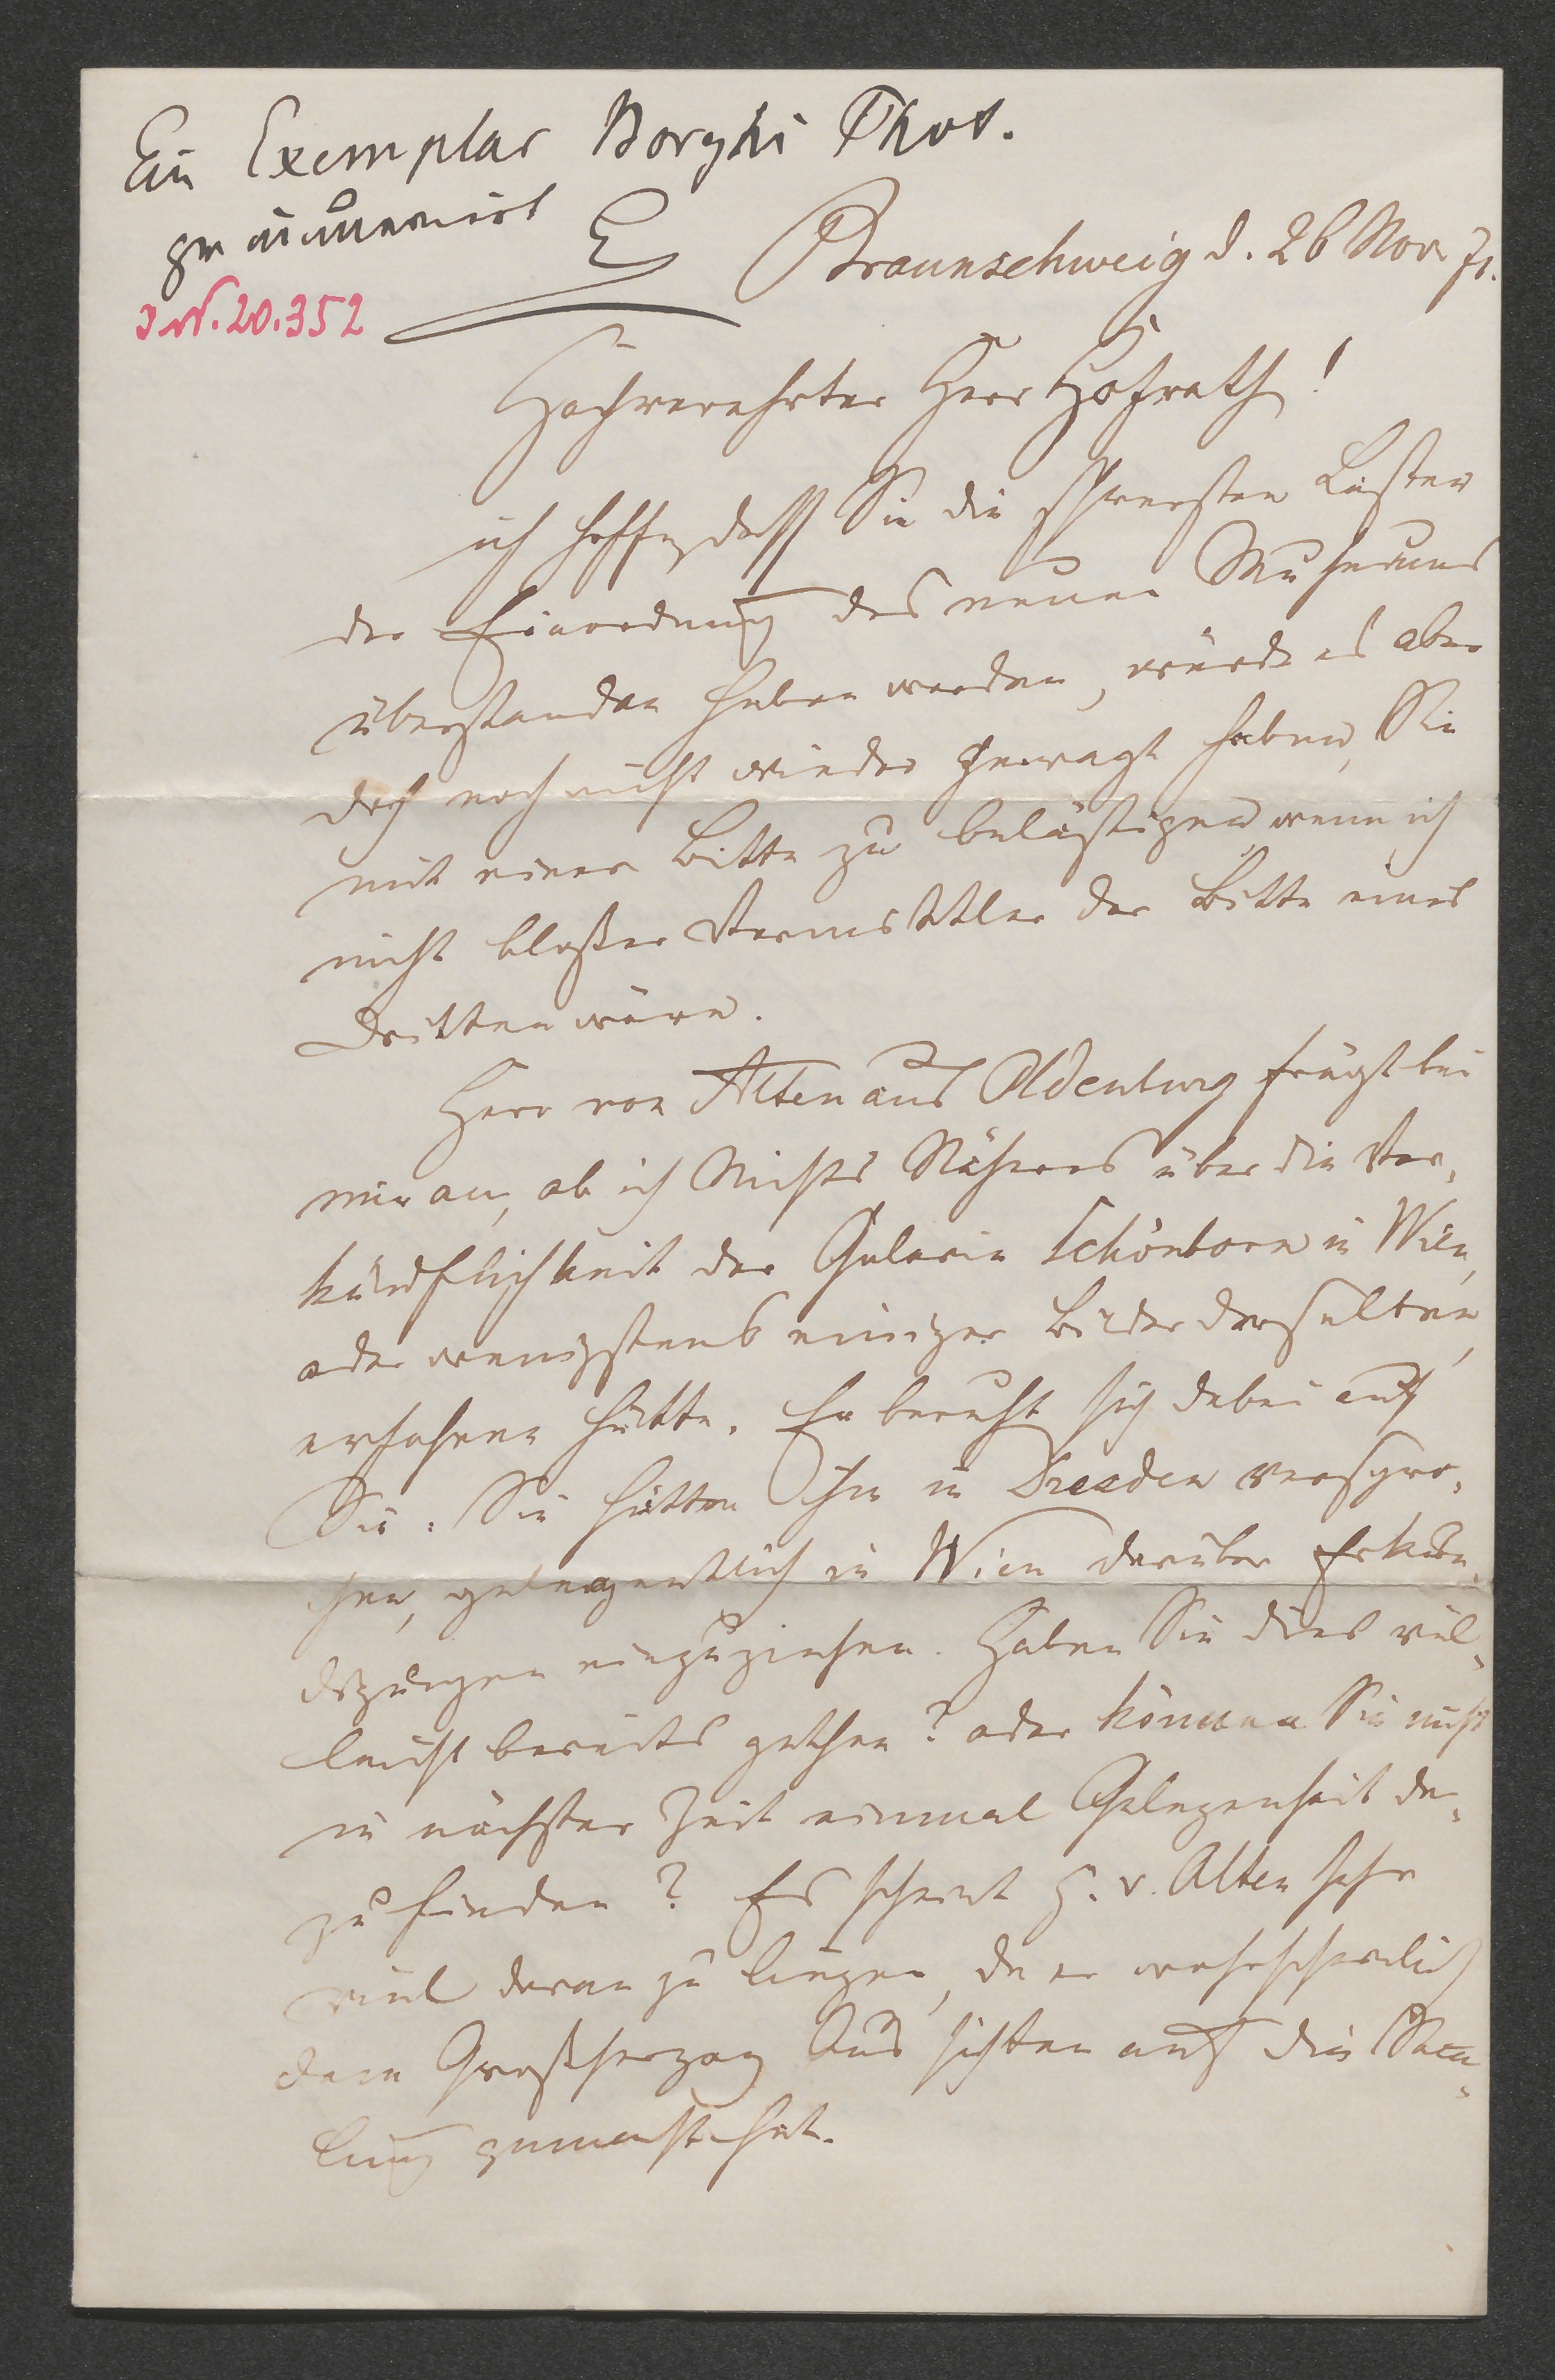 Ein Exemplar Borghi Phot.
pränumerirt E
Braunschweig d. 26 Nov 71.
I. N. 20.352
Hochverehrter Herr Hofrath!
ich hoffe, daß Sie die schwersten Lasten
der Einordnung des neuen Museums
überstanden haben werden, würde es aber
doch noch nicht wieder gewagt haben, Sie
mit einer Bitte zu belästigen, wenn ich
nicht bloßer Vermittler der Bitte eines
Dritten wäre.
Herr von Alten aus Oldenburg frägt bei
mir an, ob ich Nichts Näheres über die Ver-
käuflichkeit der Galerie Schönborn in Wien,
oder wenigstens einiger Bilder derselben,
erfahren hätte. Er beruft sich dabei auf
Sie: Sie hätten ihm in Dresden verspro-
chen, gelegentlich in Wien darüber Erkun-
digungen einzuziehen. Haben Sie dies viel-
leicht bereits gethan? oder können Sie nicht
in nächster Zeit einmal Gelegenheit da-
zu finden? Es scheint H. v. Alten sehr
viel daran zu liegen, da er wahrscheinlich
dem Großherzog Aussichten auf die Sam-
lung gemacht hat.